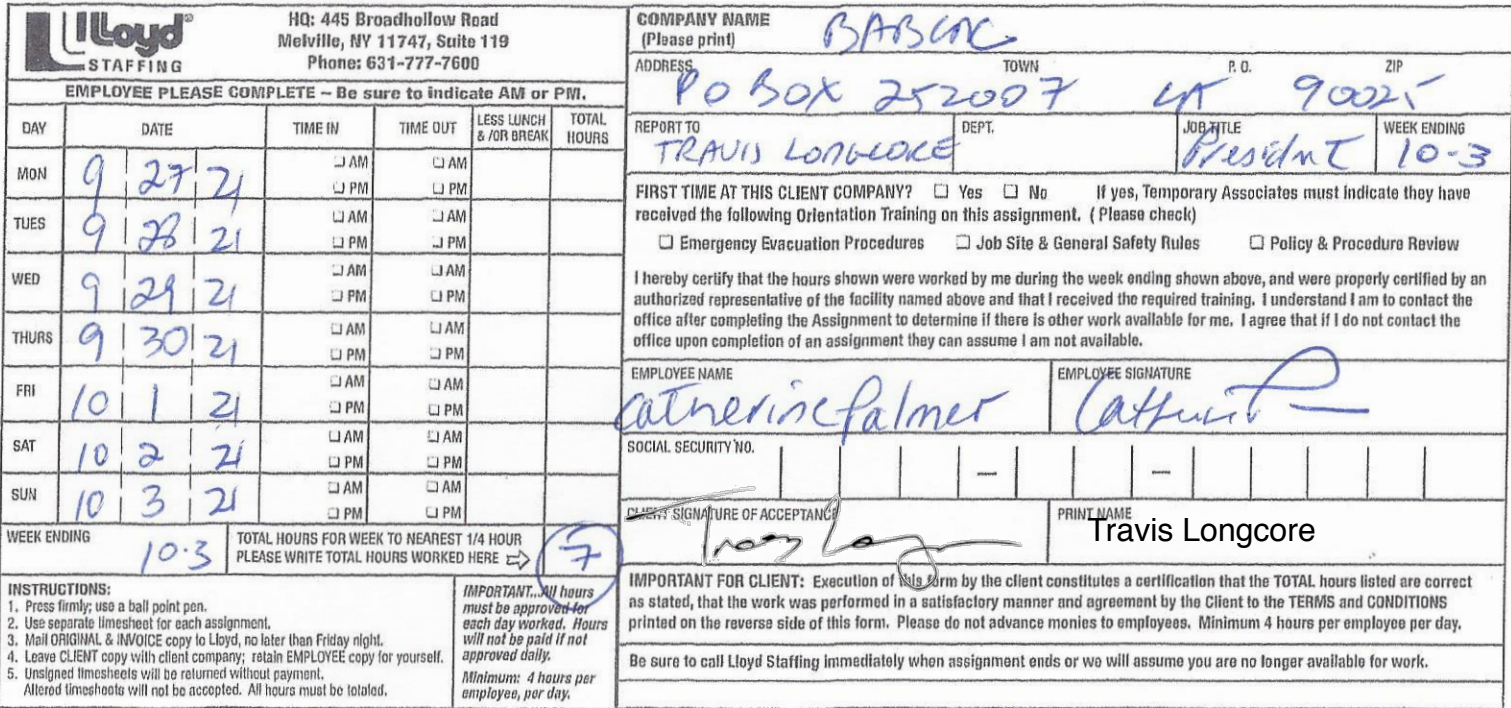 Lloyd®
STAFFING
HQ: 445 Broadhollow Road
Melville, NY 11747, Suite 119
Phone: 631-777-7600
EMPLOYEE PLEASE COMPLETE – Be sure to indicate AM or PM.
DAY DATE TIME IN TIME OUT LESS LUNCH & /OR BREAK TOTAL HOURS
MON 9 27 21 AM PM AM PM
TUES 9 28 21 AM PM AM PM
WED 9 29 21 AM PM AM PM
THURS 9 30 21 AM PM AM PM
FRI 10 1 21 AM PM AM PM
SAT 10 2 21 AM PM AM PM
SUN 10 3 21 AM PM AM PM
WEEK ENDING 10-3
TOTAL HOURS FOR WEEK TO NEAREST 1/4 HOUR
PLEASE WRITE TOTAL HOURS WORKED HERE 7
INSTRUCTIONS:
1. Press firmly; use a ball point pen.
2. Use separate timesheet for each assignment.
3. Mail ORIGINAL & INVOICE copy to Lloyd, no later than Friday night.
4. Leave CLIENT copy with client company; retain EMPLOYEE copy for yourself.
5. Unsigned timesheets will be returned without payment.
Altered timesheets will not be accepted. All hours must be totaled.
IMPORTANT...All hours
must be approved for
each day worked. Hours
will not be paid if not
approved daily.
Minimum: 4 hours per
employee, per day.
COMPANY NAME
(Please print)
ADDRESS TOWN P. O. ZIP
PO BOX 252007 LA 90025
REPORT TO DEPT. JOB TITLE WEEK ENDING
TRAVIS LONGCORE President 10-3
FIRST TIME AT THIS CLIENT COMPANY? Yes No If yes, Temporary Associates must indicate they have
received the following Orientation Training on this assignment. ( Please check)
Emergency Evacuation Procedures Job Site & General Safety Rules Policy & Procedure Review
I hereby certify that the hours shown were worked by me during the week ending shown above, and were properly certified by an
authorized representative of the facility named above and that I received the required training. I understand I am to contact the
office after completing the Assignment to determine if there is other work available for me. I agree that if I do not contact the
office upon completion of an assignment they can assume I am not available.
EMPLOYEE NAME EMPLOYEE SIGNATURE
Catherine Palmer
SOCIAL SECURITY NO.
CLIENT SIGNATURE OF ACCEPTANCE PRINT NAME
Travis Longcore
IMPORTANT FOR CLIENT: Execution of this form by the client constitutes a certification that the TOTAL hours listed are correct
as stated, that the work was performed in a satisfactory manner and agreement by the Client to the TERMS and CONDITIONS
printed on the reverse side of this form. Please do not advance monies to employees. Minimum 4 hours per employee per day.
Be sure to call Lloyd Staffing immediately when assignment ends or we will assume you are no longer available for work.